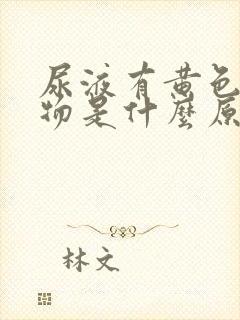 尿液有黄色
物是什麼原
林文